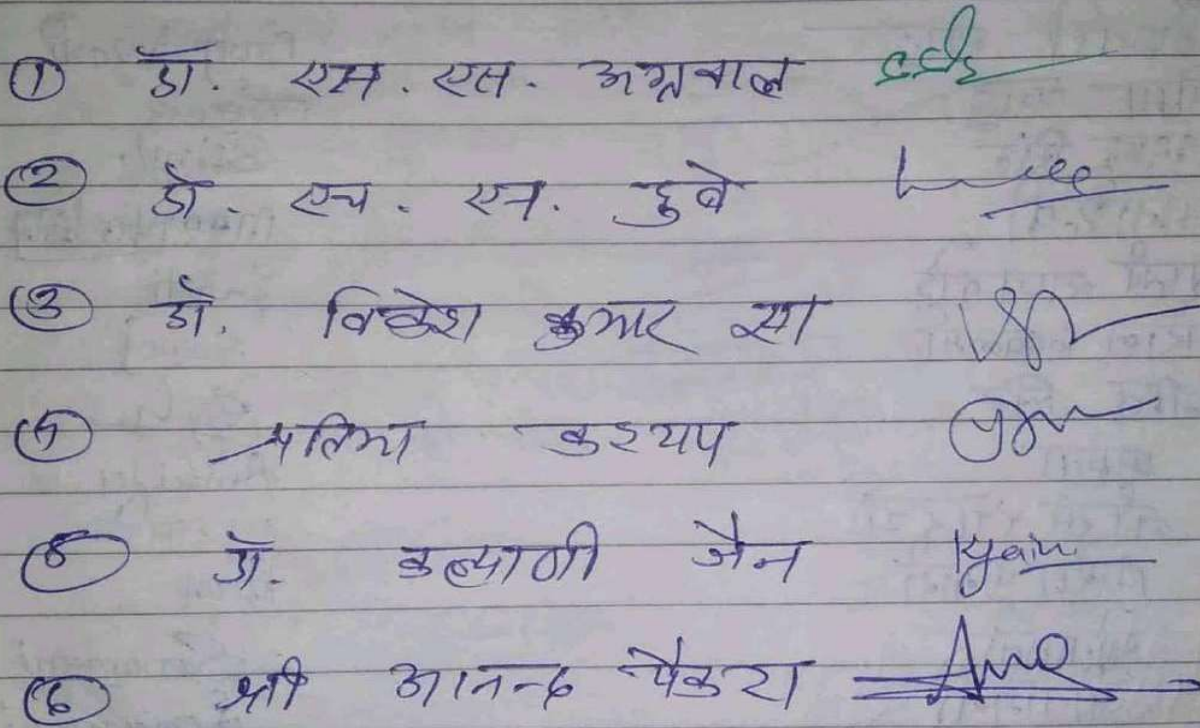 ① डॉ. एस. एस. अग्रवाल
② डॉ. एच. एन. दुबे
③ डॉ. कुमार सा
④ प्रतिमा कश्यप
⑤ डॉ. कल्याणी जैन Kjain
⑥ श्री आनन्द पैकरा